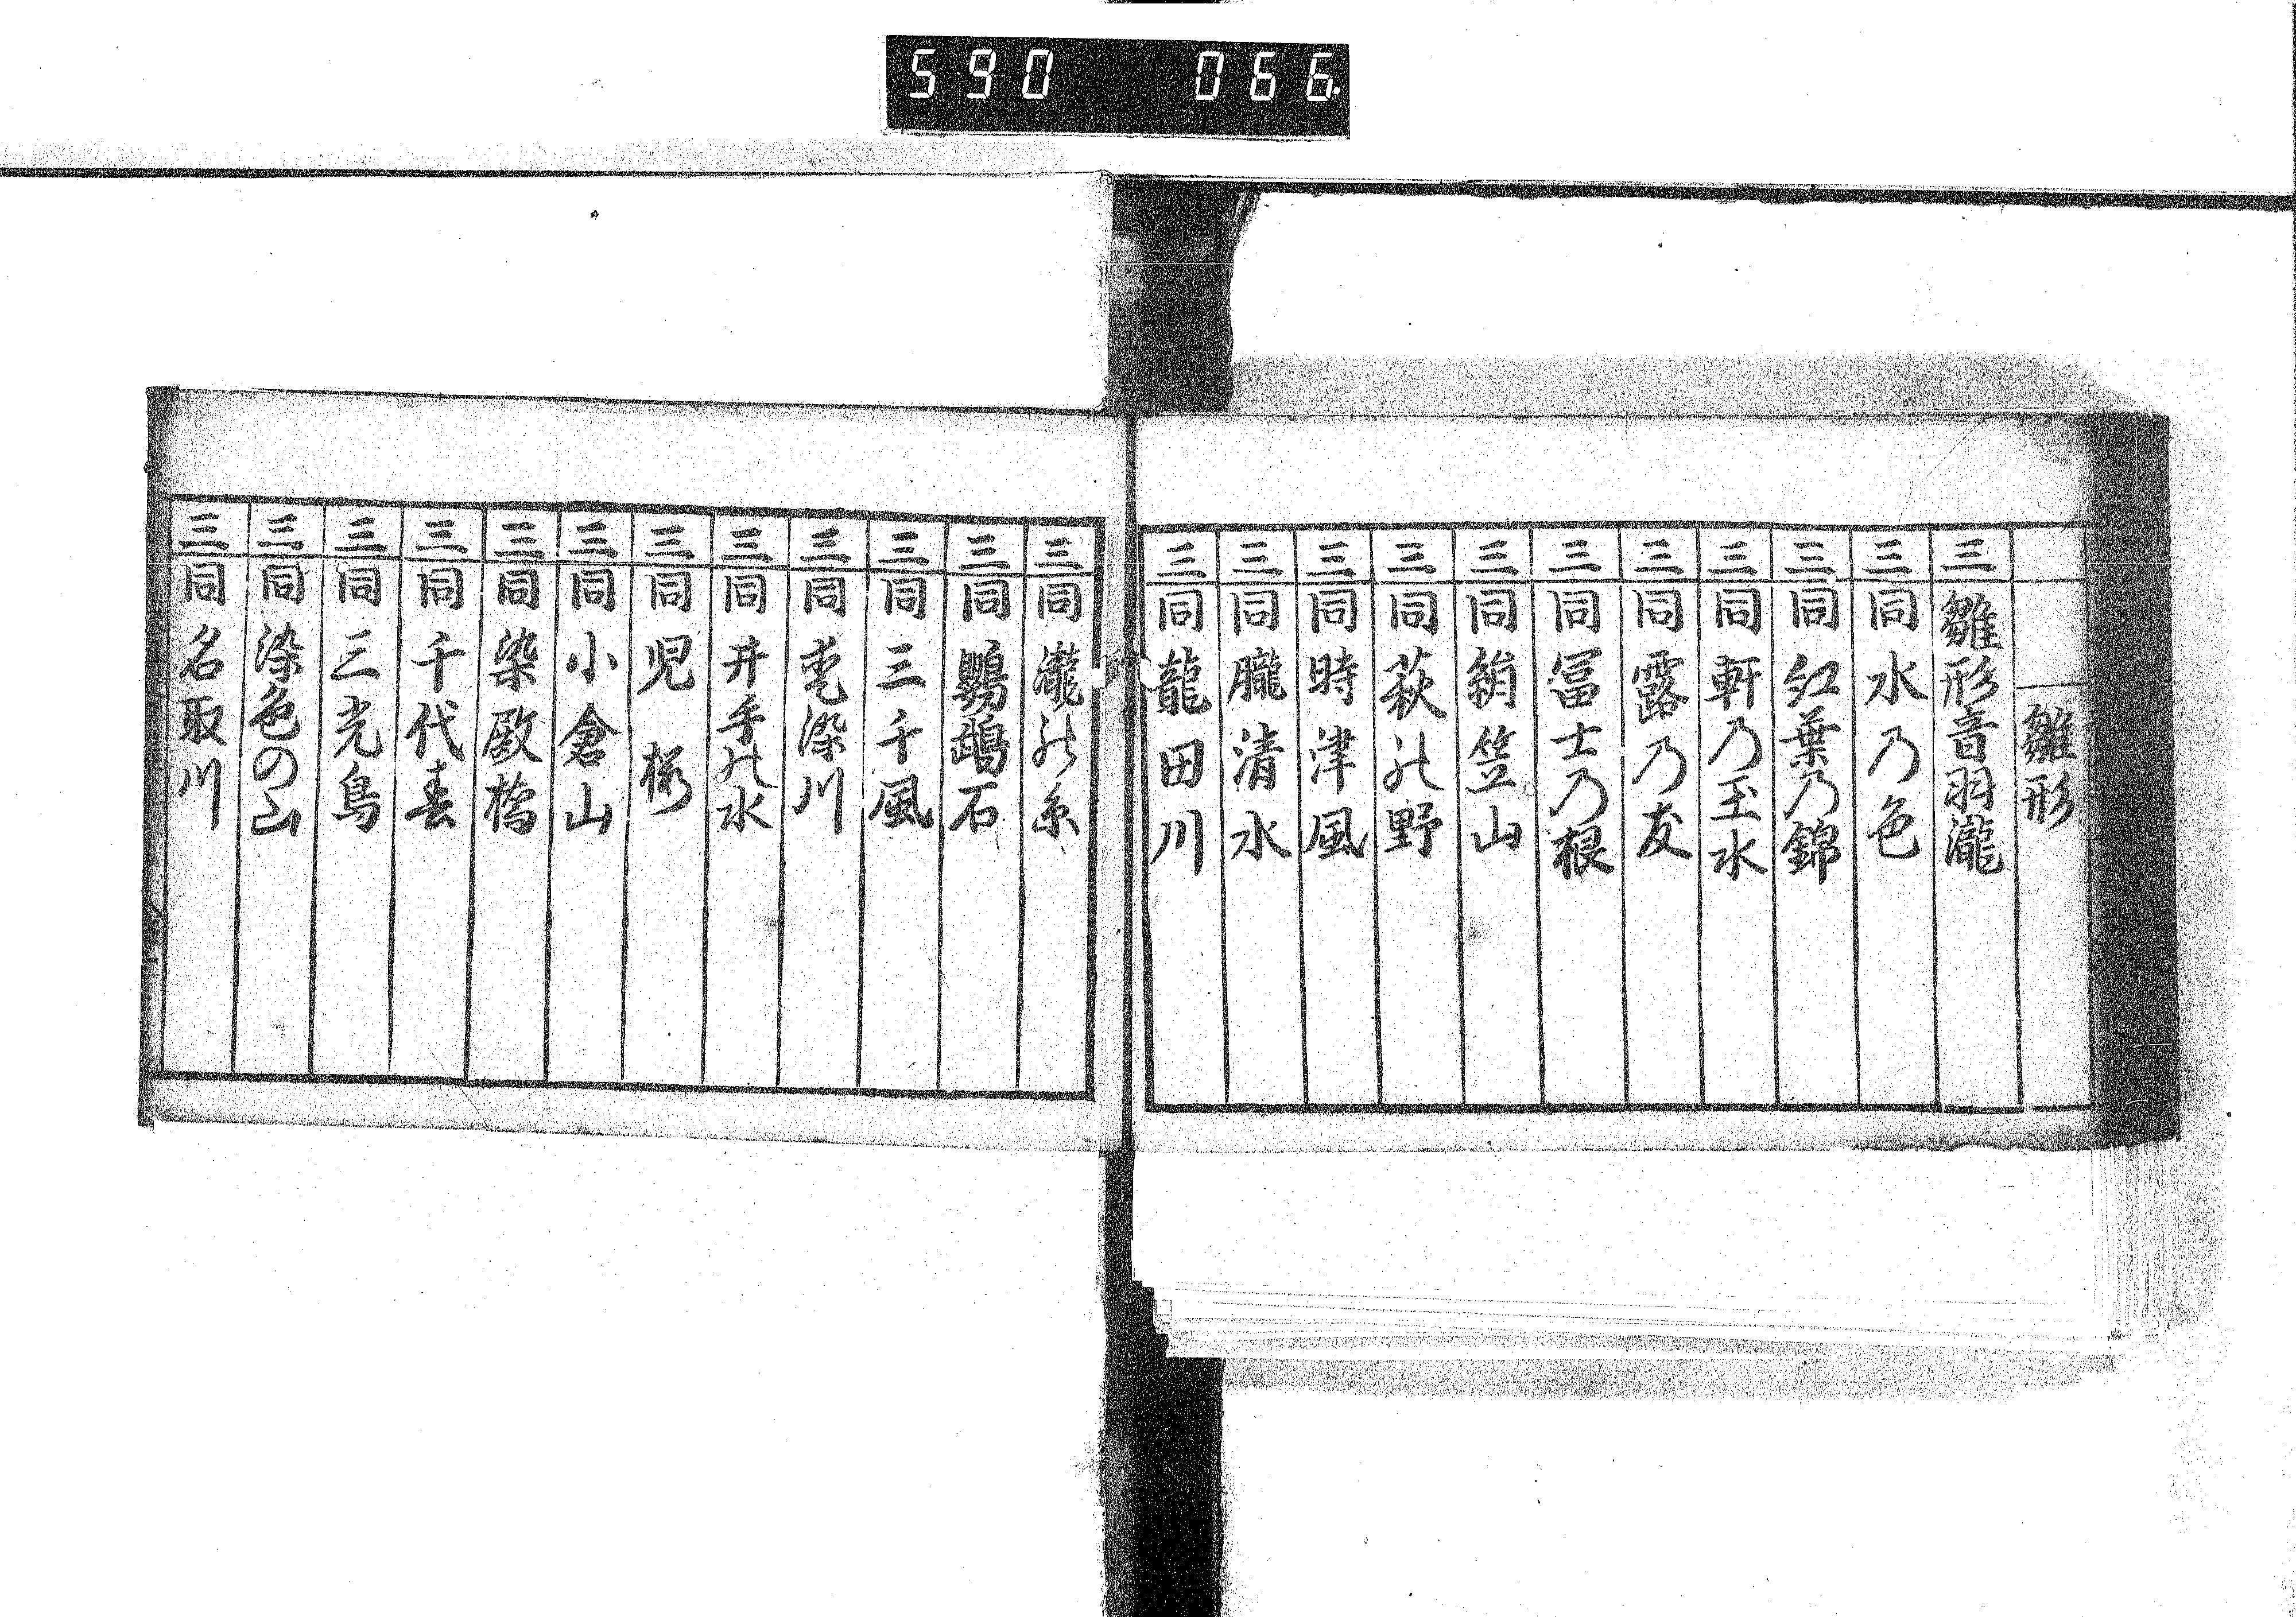 590 066
雛形
三 雛形音羽瀧
三 同 水乃色
三 同 紅葉乃錦
三 同 軒乃玉水
三 同 露乃友
三 同 冨士乃根
三 同 絹笠山
三 同 萩能野
三 同 時津風
三 同 朧清水
三 同 龍田川
三 同 瀧能糸
三 同 鸚鵡石
三 同 三千風
三 同 染川
三 同 井手能水
三 同 児桜
三 同 小倉山
三 同 染殿橋
三 同 千代春
三 同 三光鳥
三 同 染色の山
三 同 名取川